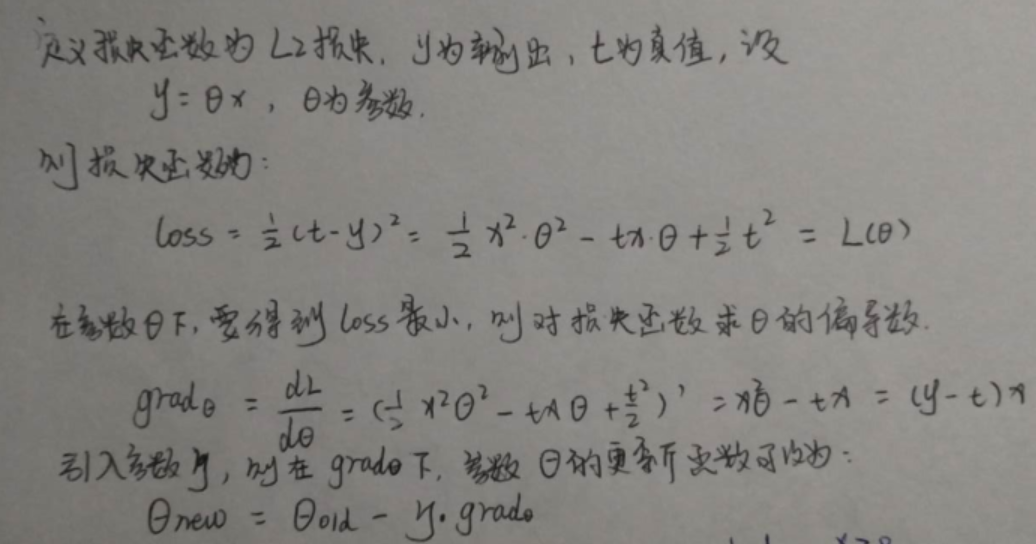 定义损失函数为L2损失, y为输出, t为真值, 设
y = θx , θ为参数.
则损失函数为:
loss = ½(t-y)² = ½x²·θ² - tx·θ + ½t² = L(θ)
在参数θ下, 要得到loss最小, 则对损失函数求θ的偏导数.
gradθ = dL/dθ = (½x²θ² - txθ + t²/2)' = x²θ - tx = (y-t)x
引入参数η, 则在gradθ下, 参数θ的更新函数可改为:
θnew = θold - η·gradθ